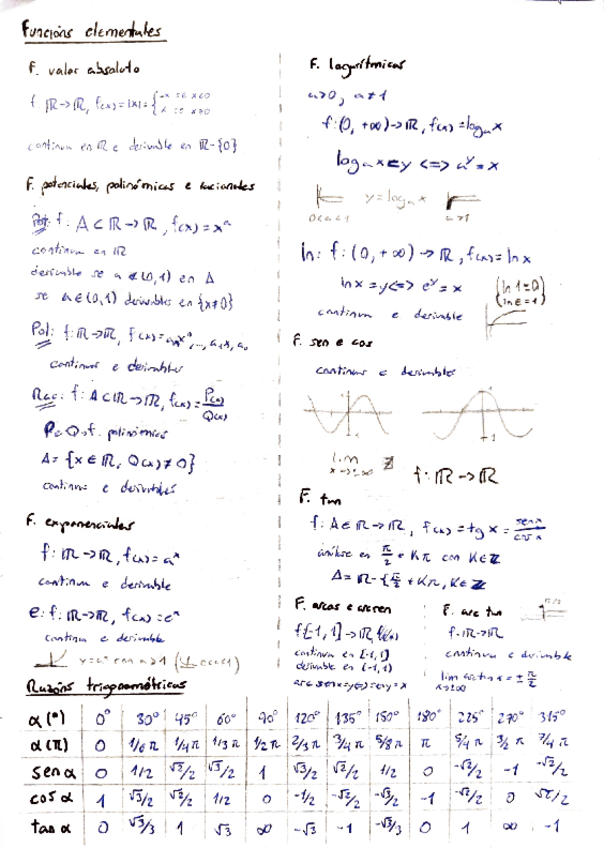 Funcións elementales
F. valor absoluto
f: ℝ→ℝ, f(x)=|x|={-x se x<0
x se x≥0
continua en ℝ e derivable en ℝ-{0}
F. potenciales, polinómicas e racionales
Pot: f: A⊂ℝ→ℝ, f(x)=xᵃ
continua en ℝ
derivable se a∉(0,1) en A
se a∈(0,1) derivables en {x≠0}
Pol: f: ℝ→ℝ, f(x)=aₙxⁿ,...,a₁x, a₀
continuas e derivables
Rac: f: A⊂ℝ→ℝ, f(x)=P(x)/Q(x)
P e Q f. polinómicas
A={x∈ℝ, Q(x)≠0}
continuas e derivables
F. exponenciales
f: ℝ→ℝ, f(x)=aˣ
continua e derivable
e: f: ℝ→ℝ, f(x)=eˣ
continua e derivable
y=aˣ con a>1 (0<a<1)
F. logarítmicas
a>0, a≠1
f:(0,+∞)→ℝ, f(x)=logₐx
logₐx=y <=> aʸ=x
0<a<1 y=logₐx a>1
ln: f:(0,+∞)→ℝ, f(x)=ln x
ln x=y<=> eʸ=x (ln 1=0)
(ln e=1)
continua e derivable
F. sen e cos
continuas e derivables
1
-1
lim x→±∞ ∄ f: ℝ→ℝ
F. tan
f: A∈ℝ→ℝ, f(x)=tg x=sen x/cos x
en π/2+Kπ con K∈ℤ
A=ℝ-{π/2+Kπ, K∈ℤ
F. arcos e arcsen
f:[-1,1]→ℝ
continua en [-1,1]
derivable en (-1,1)
arc sen x=y<=> sen y=x
F. arc tan π/2
f: ℝ→ℝ
continua e derivable
lim x→±∞ arc tan x=±π/2
Razóns trigonométricas
α(°) 0° 30° 45° 60° 90° 120° 135° 150° 180° 225° 270° 315°
α(π) 0 1/6π 1/4π 1/3π 1/2π 2/3π 3/4π 5/8π π 5/4π 3/2π 7/4π
sen α 0 1/2 √2/2 √3/2 1 √3/2 √2/2 1/2 0 -√2/2 -1 -√2/2
cos α 1 √3/2 √2/2 1/2 0 -1/2 -√2/2 -√3/2 -1 -√2/2 0 √2/2
tan α 0 √3/3 1 √3 ∞ -√3 -1 -√3/3 0 1 ∞ -1